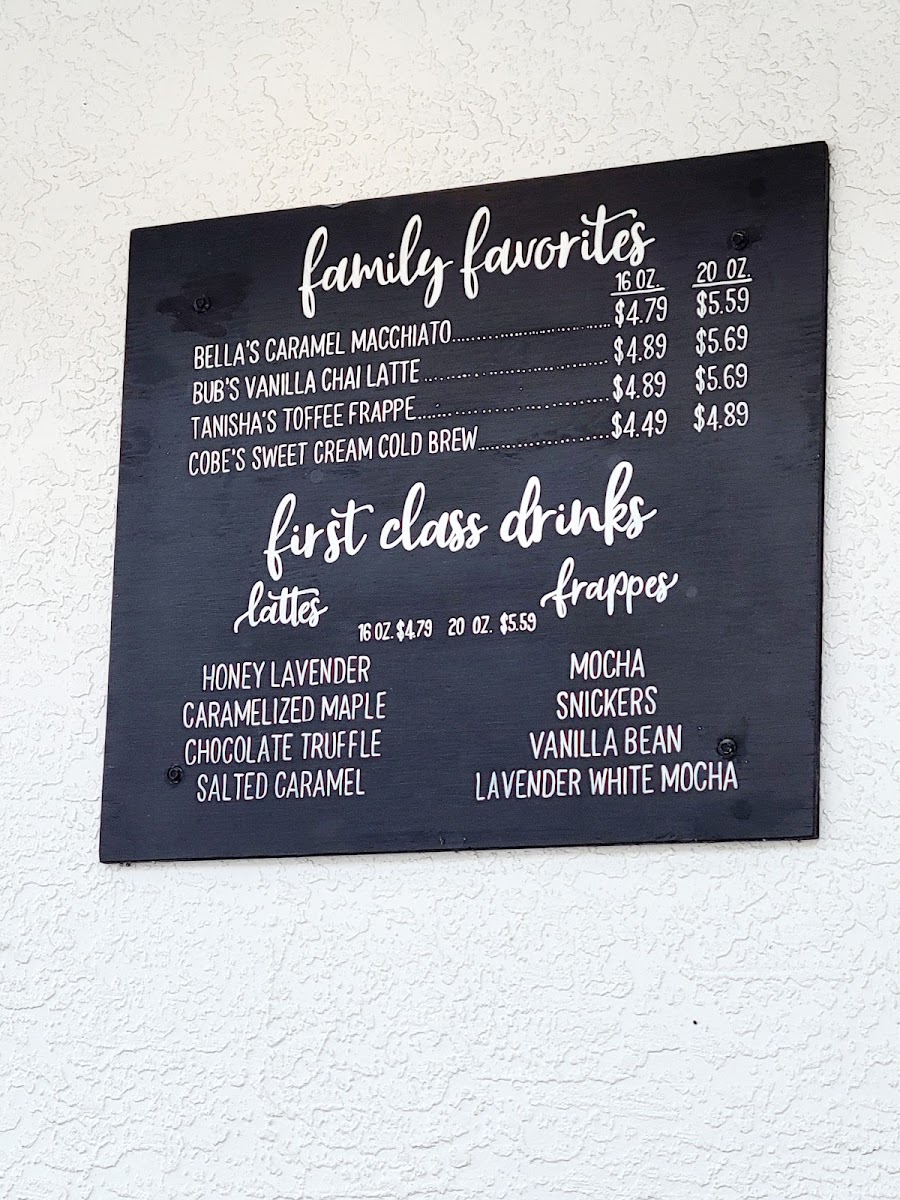 family favorites
16 OZ. 20 OZ.
BELLA'S CARAMEL MACCHIATO $4.79 $5.59
BUB'S VANILLA CHAI LATTE $4.89 $5.69
TANISHA'S TOFFEE FRAPPE $4.89 $5.69
COBE'S SWEET CREAM COLD BREW $4.49 $4.89
first class drinks
lattes frappes
16 OZ. $4.79 20 OZ. $5.59
HONEY LAVENDER MOCHA
CARAMELIZED MAPLE SNICKERS
CHOCOLATE TRUFFLE VANILLA BEAN
SALTED CARAMEL LAVENDER WHITE MOCHA